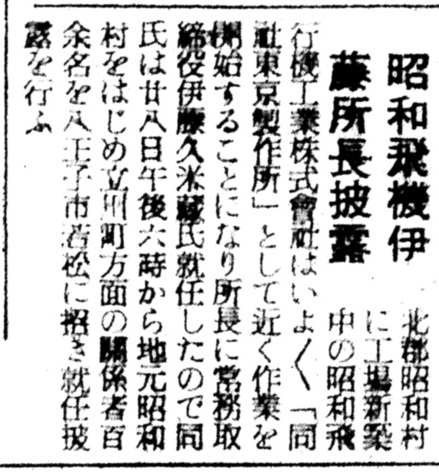 昭和飛機伊
藤所長披露
北郡昭和村
に工場新築
中の昭和飛
行機工業株式會社はいよ〱「同
社東京製作所」として近く作業を
開始することになり所長に常務取
締役伊藤久米藏氏就任したので同
氏は廿八日午後六時から地元昭和
村をはじめ立川町方面の關係者百
余名を八王子市若松に招き就任披
露を行ふ